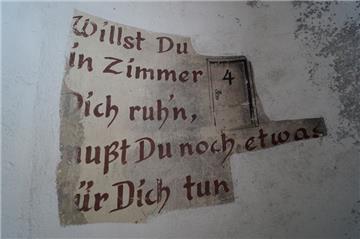 Willst Du
in Zimmer 4
Dich ruh'n,
mußt Du noch etwas
für Dich tun